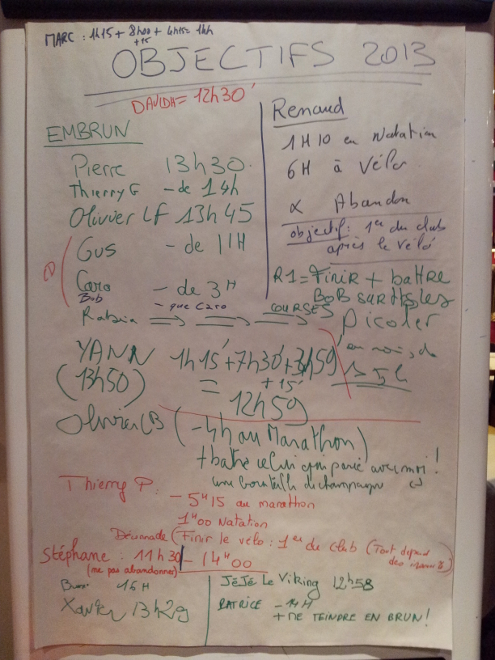 MARC : 1h15 + 8h00 + 4h15 = 14h
+15
OBJECTIFS 2013
DAVIDH = 12h30'
EMBRUN
Pierre 13h30
Thierry G - de 14h
Olivier LF 13h45
Gus - de 11H
Caro - de 3H
Bob - que Caro
Rabia
YANN 1h15' + 7h30' + 3h59'
(13h50) + 15'
= 12h59
Olivier CB (-4h au Marathon)
+ battre celui qui parie avec moi !
une bouteille de champagne
Renaud
1H10 en Natation
6H à Vélo
α Abandon
objectif : 1er du club
après le vélo
R1 = Finir + battre
BOB sur ttes les
COURSES
Picoler
en moins de
5L
Thierry P. - 5H15 au marathon
1H00 Natation
(Finir le vélo : 1er du club (Tout depend
des
Stéphane : 11H30 - 14H00
(ne pas abandonner)
15H
Xavier 13h29
JéJé Le Viking 12h58
PATRICE - 14H
+ ME TEINDRE EN BRUN !